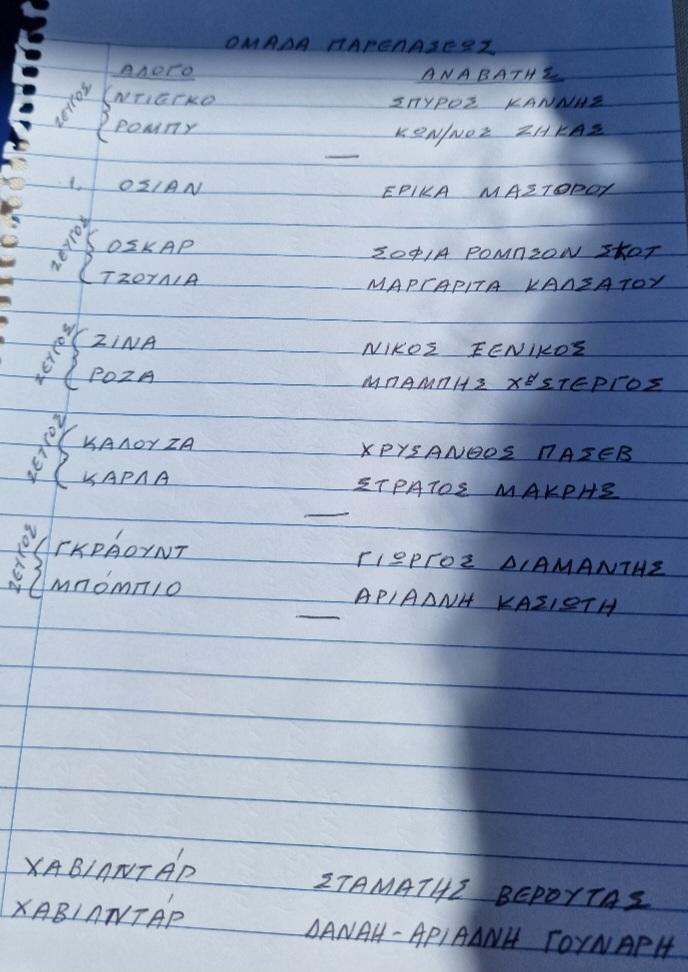 ΟΜΑΔΑ ΠΑΡΕΛΑΣΕΩΣ
ΑΛΟΓΟ ΑΝΑΒΑΤΗΣ
ΖΕΥΓΟΣ ΝΤΙΕΓΚΟ ΣΠΥΡΟΣ ΚΑΝΝΗΣ
ΡΟΜΠΥ ΚΩΝ/ΝΟΣ ΖΗΚΑΣ
1. ΟΣΙΑΝ ΕΡΙΚΑ ΜΑΣΤΟΡΟΥ
ΖΕΥΓΟΣ ΟΣΚΑΡ ΣΟΦΙΑ ΡΟΜΠΣΟΝ ΣΚΟΤ
ΤΖΟΥΛΙΑ ΜΑΡΓΑΡΙΤΑ ΚΑΛΣΑΤΟΥ
ΖΕΥΓΟΣ ΖΙΝΑ ΝΙΚΟΣ ΞΕΝΙΚΟΣ
ΡΟΖΑ ΜΠΑΜΠΗΣ
ΖΕΥΓΟΣ ΚΑΛΟΥΖΑ ΧΡΥΣΑΝΘΟΣ ΠΑΣΕΒ
ΚΑΡΛΑ ΣΤΡΑΤΟΣ ΜΑΚΡΗΣ
ΖΕΥΓΟΣ ΓΚΡΆΟΥΝΤ ΓΙΩΡΓΟΣ ΔΙΑΜΑΝΤΗΣ
ΜΠΌΜΠΙΟ ΑΡΙΑΔΝΗ ΚΑΣΙΩΤΗ
ΧΑΒΙΛΝΤΆΡ ΣΤΑΜΑΤΗΣ ΒΕΡΟΥΤΑΣ
ΧΑΒΙΛΝΤΆΡ ΔΑΝΑΗ-ΑΡΙΑΔΝΗ ΓΟΥΝΑΡΗ